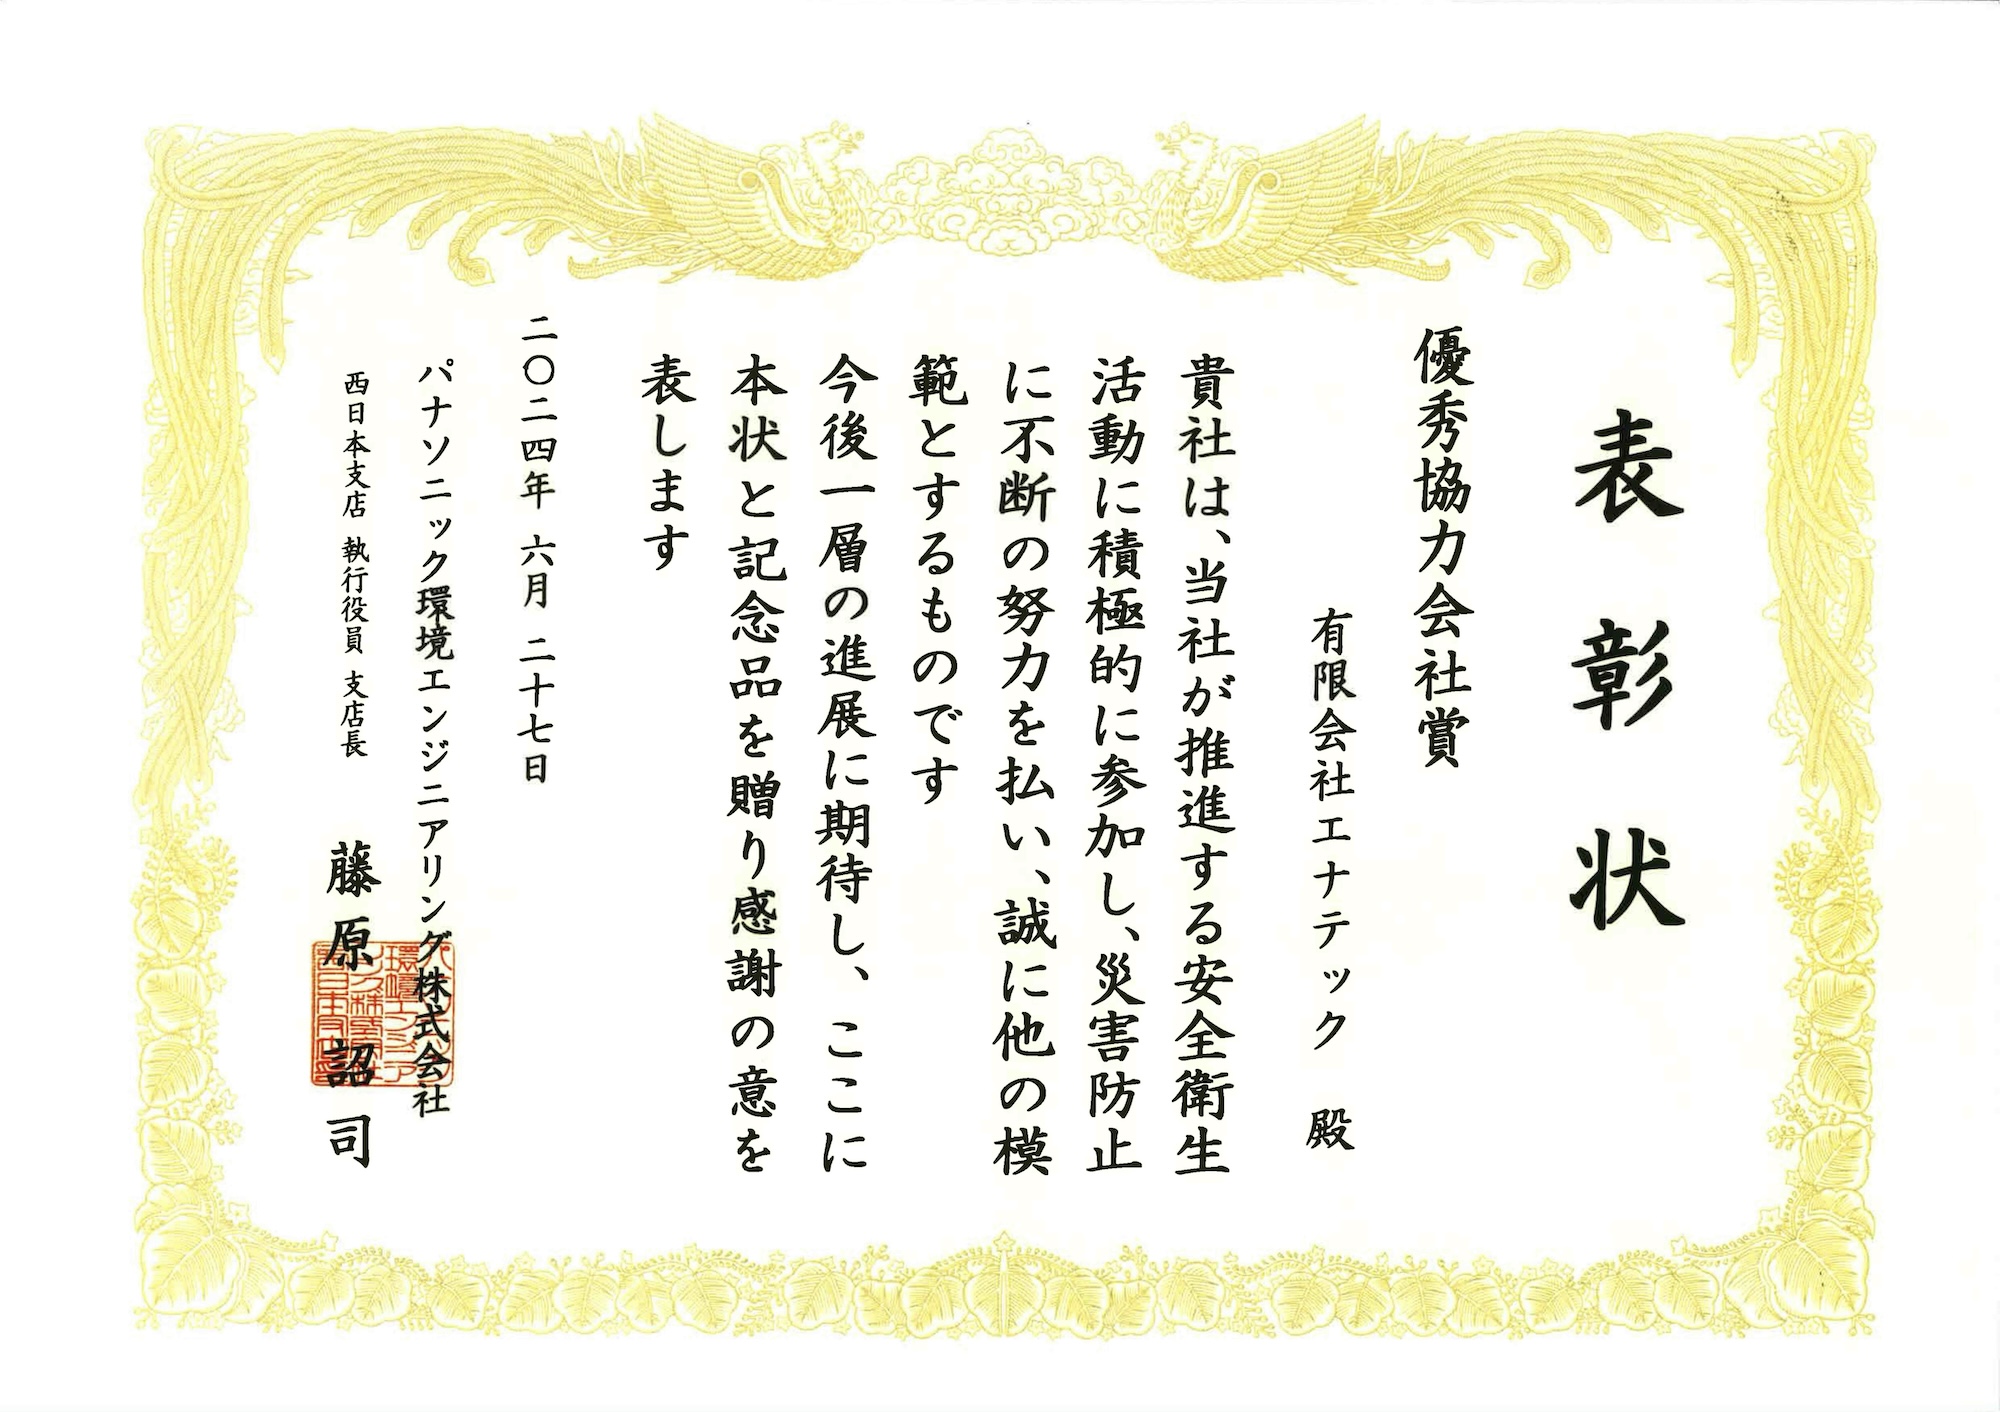 表彰状
優秀協力会社賞
有限会社エナテック 殿
貴社は、当社が推進する安全衛生
活動に積極的に参加し、災害防止
に不断の努力を払い、誠に他の模
範とするものです
今後一層の進展に期待し、ここに
本状と記念品を贈り感謝の意を
表します
二〇二四年 六月 二十七日
パナソニック環境エンジニアリング株式会社
西日本支店 執行役員 支店長 藤原 詔司